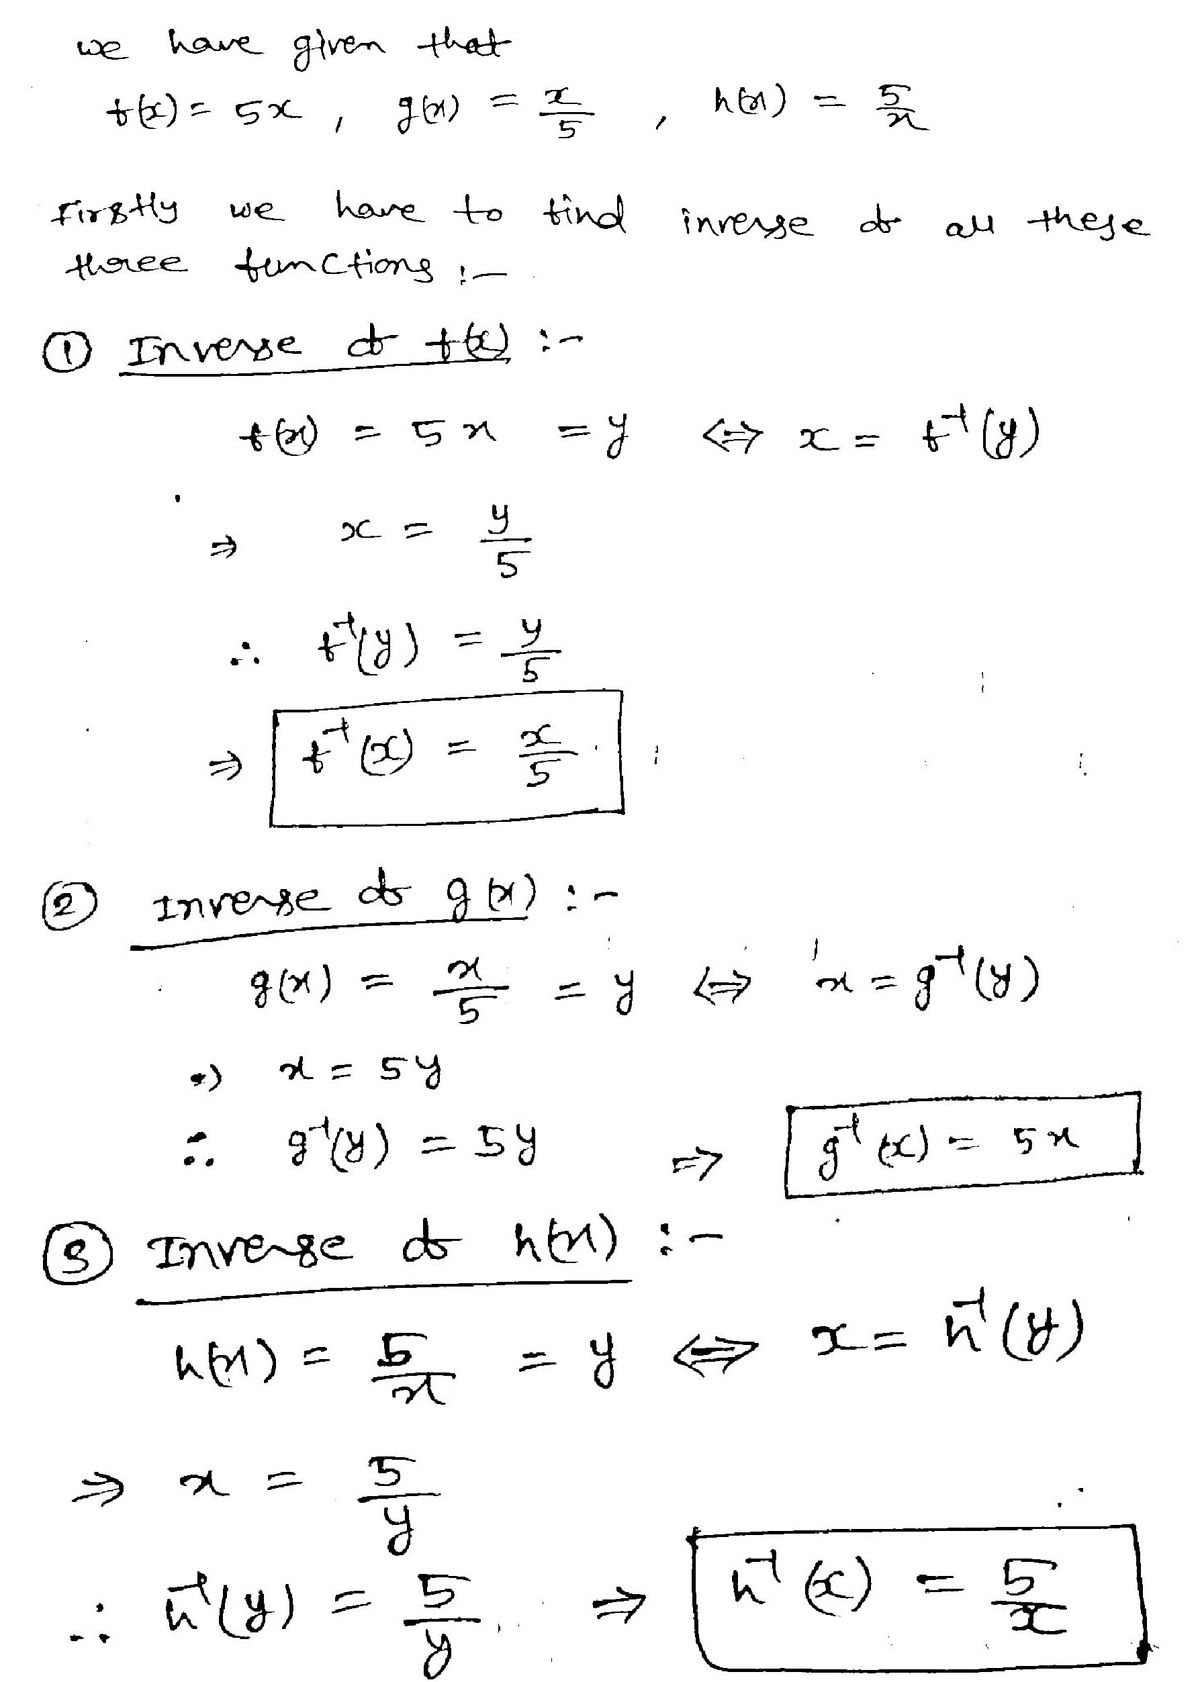 we have given that
f(x) = 5x , g(x) = x/5 , h(x) = 5/x
Firstly we have to find inverse of all these
three functions :-
① Inverse of f(x) :-
f(x) = 5x = y ⇔ x = f⁻¹(y)
⇒ x = y/5
∴ f⁻¹(y) = y/5
⇒ f⁻¹(x) = x/5
② Inverse of g(x) :-
g(x) = x/5 = y ⇔ x = g⁻¹(y)
⇒ x = 5y
∴ g⁻¹(y) = 5y ⇒ g⁻¹(x) = 5x
③ Inverse of h(x) :-
h(x) = 5/x = y ⇔ x = h⁻¹(y)
⇒ x = 5/y
∴ h⁻¹(y) = 5/y ⇒ h⁻¹(x) = 5/x